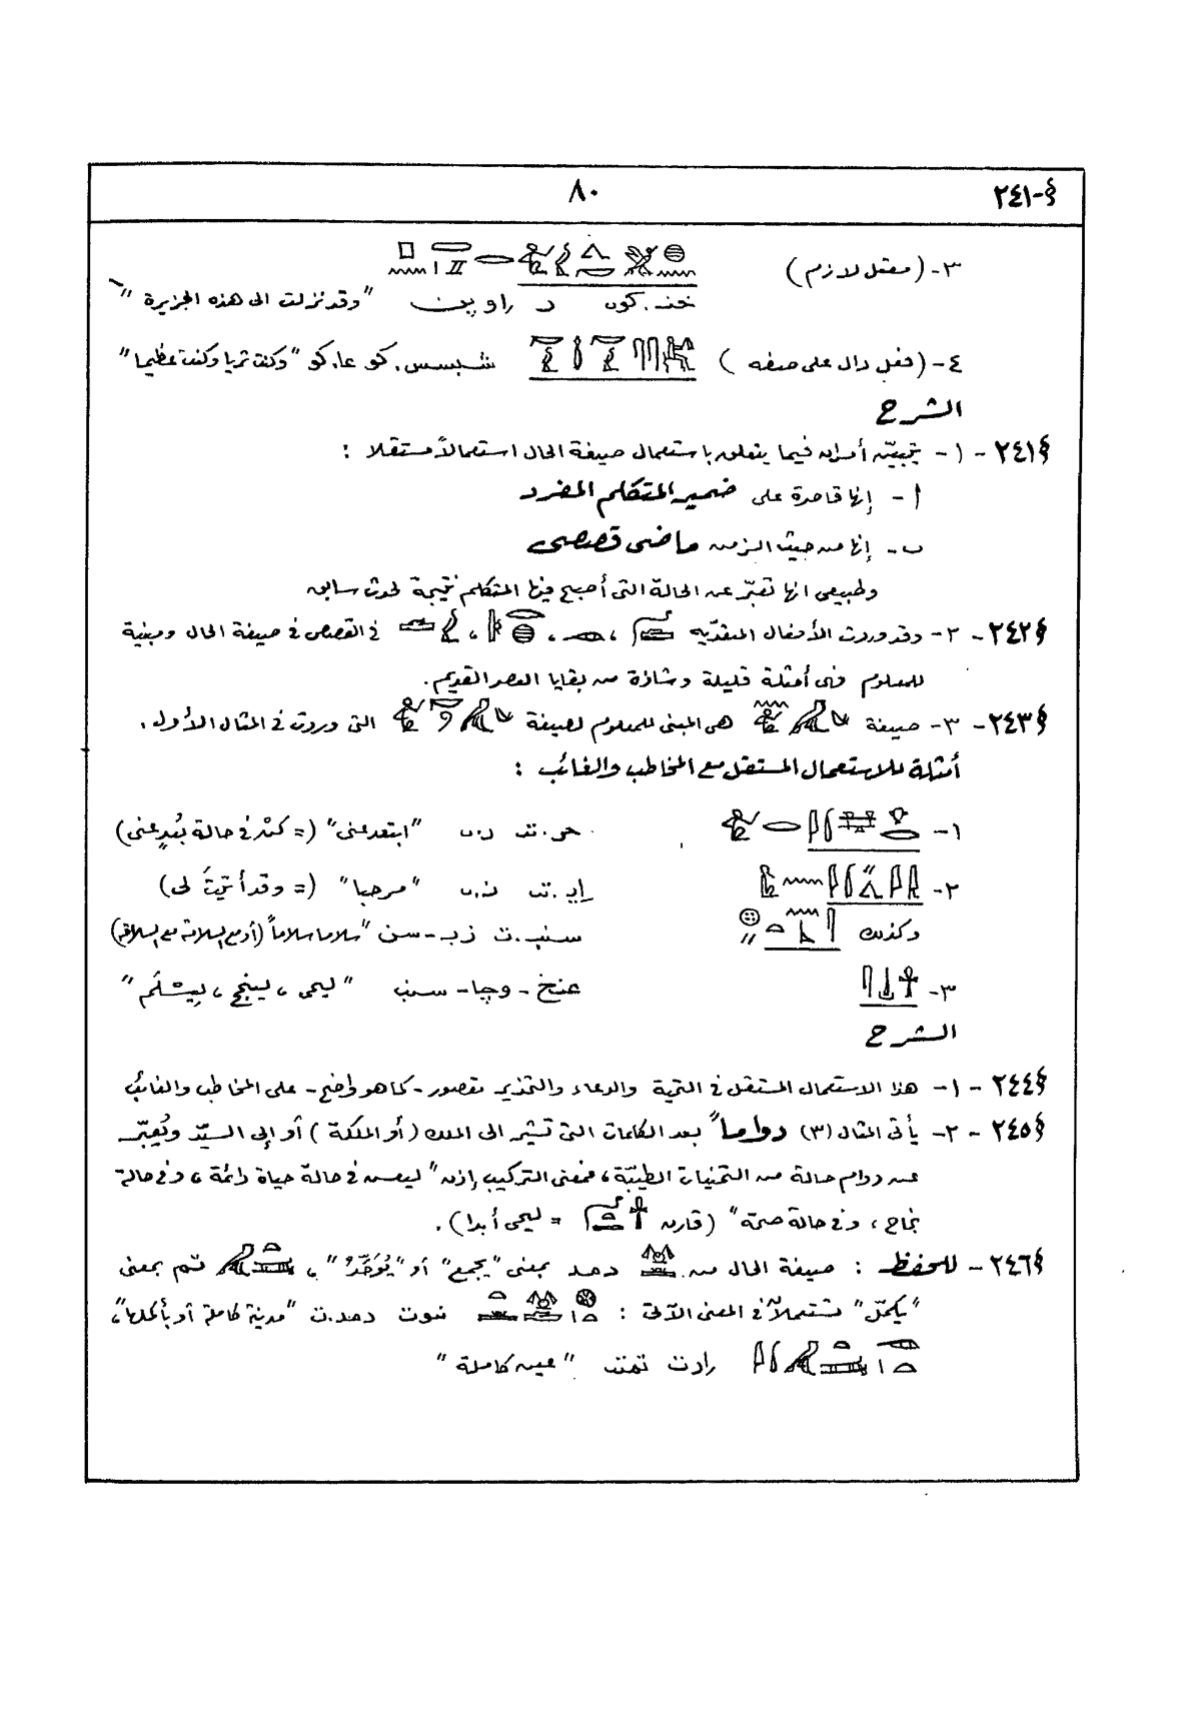 §-٢٤١
٨٠
٣- (معتل لازم)
خند.كون د راو پن "وقد نزلت الى هذه الجزيرة"
٤- (فعل دال على صفه) شبسس.كو عا.كو "وكنت ثريا وكنت عظيما"
الشرح
§٢٤١ - ١- يتبيّن أمران فيما يتعلق باستعمال صيغة الحال استعمالاً مستقلا :
أ - إنها قاصرة على ضمير المتكلم المفرد
ب - إنها من حيث الزمن ماضى قصصى
وطبيعى انها تعبّر عن الحالة التى أصبح فيها المتكلم نتيجة لحدث سابق
§٢٤٢ - ٢- وقد وردت الأفعال المتعدّيه ، ، ، فى القصص فى صيغة الحال ومبنية
للمعلوم فى أمثلة قليلة وشاذة من بقايا العصر القديم.
§٢٤٣ - ٣- صيغة هى المبنى للمعلوم لصيغة التى وردت فى المثال الأول.
أمثلة للاستعمال المستقل مع المخاطب والغائب :
١- حر.تى ر.ى "ابتعد عنى" (= كنْ فى حالة بُعدٍ عنى)
٢- إيـ.تى ن.ى "مرحبا" (= وقد أتيتَ لى)
وكذلك سنب.ت زپ-سن "سلاما سلاماً (أو مع السلامة مع السلامة)
٣- عنخ - وچا - سنب "ليحى ، لينجح ، لِيسْلَم"
الشرح
§٢٤٤ - ١- هذا الاستعمال المستقل فى التحية والدعاء والتحذير مقصور - كما هو واضح - على المخاطب والغائب
§٢٤٥ - ٢- يأتى المثال (٣) دواماً بعد الكلمات التى تشير الى الملك (أو الملكة) أو إلى السيّد ويُعبّر
عن دوام حالة من التمنيات الطيبّة ، فمعنى التركيب إذن "ليعس فى حالة حياة دائمة ، وفى حالة
نجاح ، وفى حالة صحة" (قارن = ليحى أبدا).
§٢٤٦ - للحفظ : صيغة الحال من دمد بمعنى "يجمع" أو "يُوَحِّدُ" ، تم بمعنى
"يكمّل" تستعملان فى المعنى الآتى : نيوت دمد.ت "مدينة كاملة أو بأكملها"،
رادت تمتى "عين كاملة"